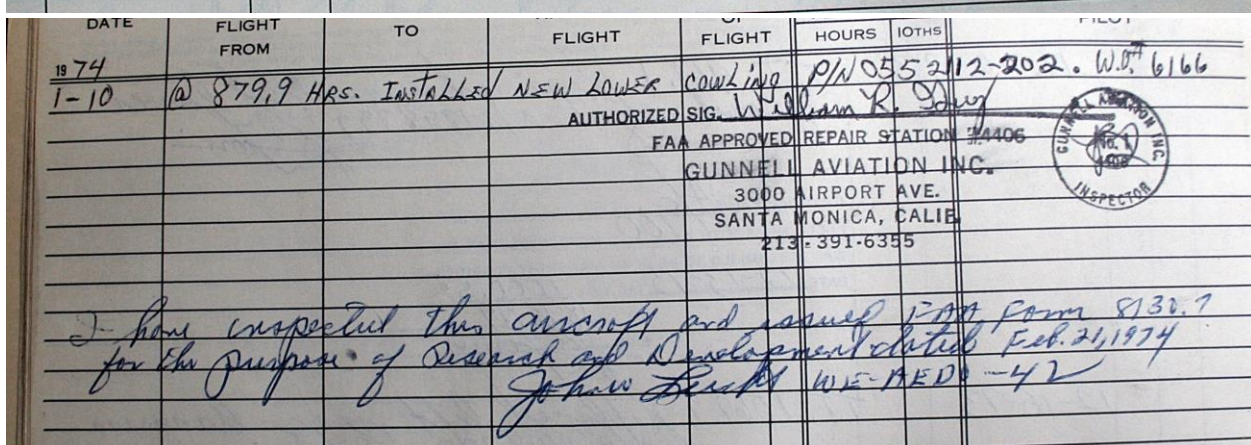 DATE FLIGHT FROM TO FLIGHT FLIGHT HOURS 10THS PILOT
1974
1-10 @ 879.9 HRS. INSTALLED NEW LOWER COWLING P/N 0552112-202. W.O.# 6166
AUTHORIZED SIG. William R.
FAA APPROVED REPAIR STATION #4406
GUNNELL AVIATION INC.
3000 AIRPORT AVE.
SANTA MONICA, CALIF.
213-391-6355
GUNNELL AVIATION INC.
No. 1
INSPECTOR
I have inspected this aircraft and issued FAA Form 8130.7
for the purpose of Research and Development dated Feb. 21, 1974
John WE-AEDO-42